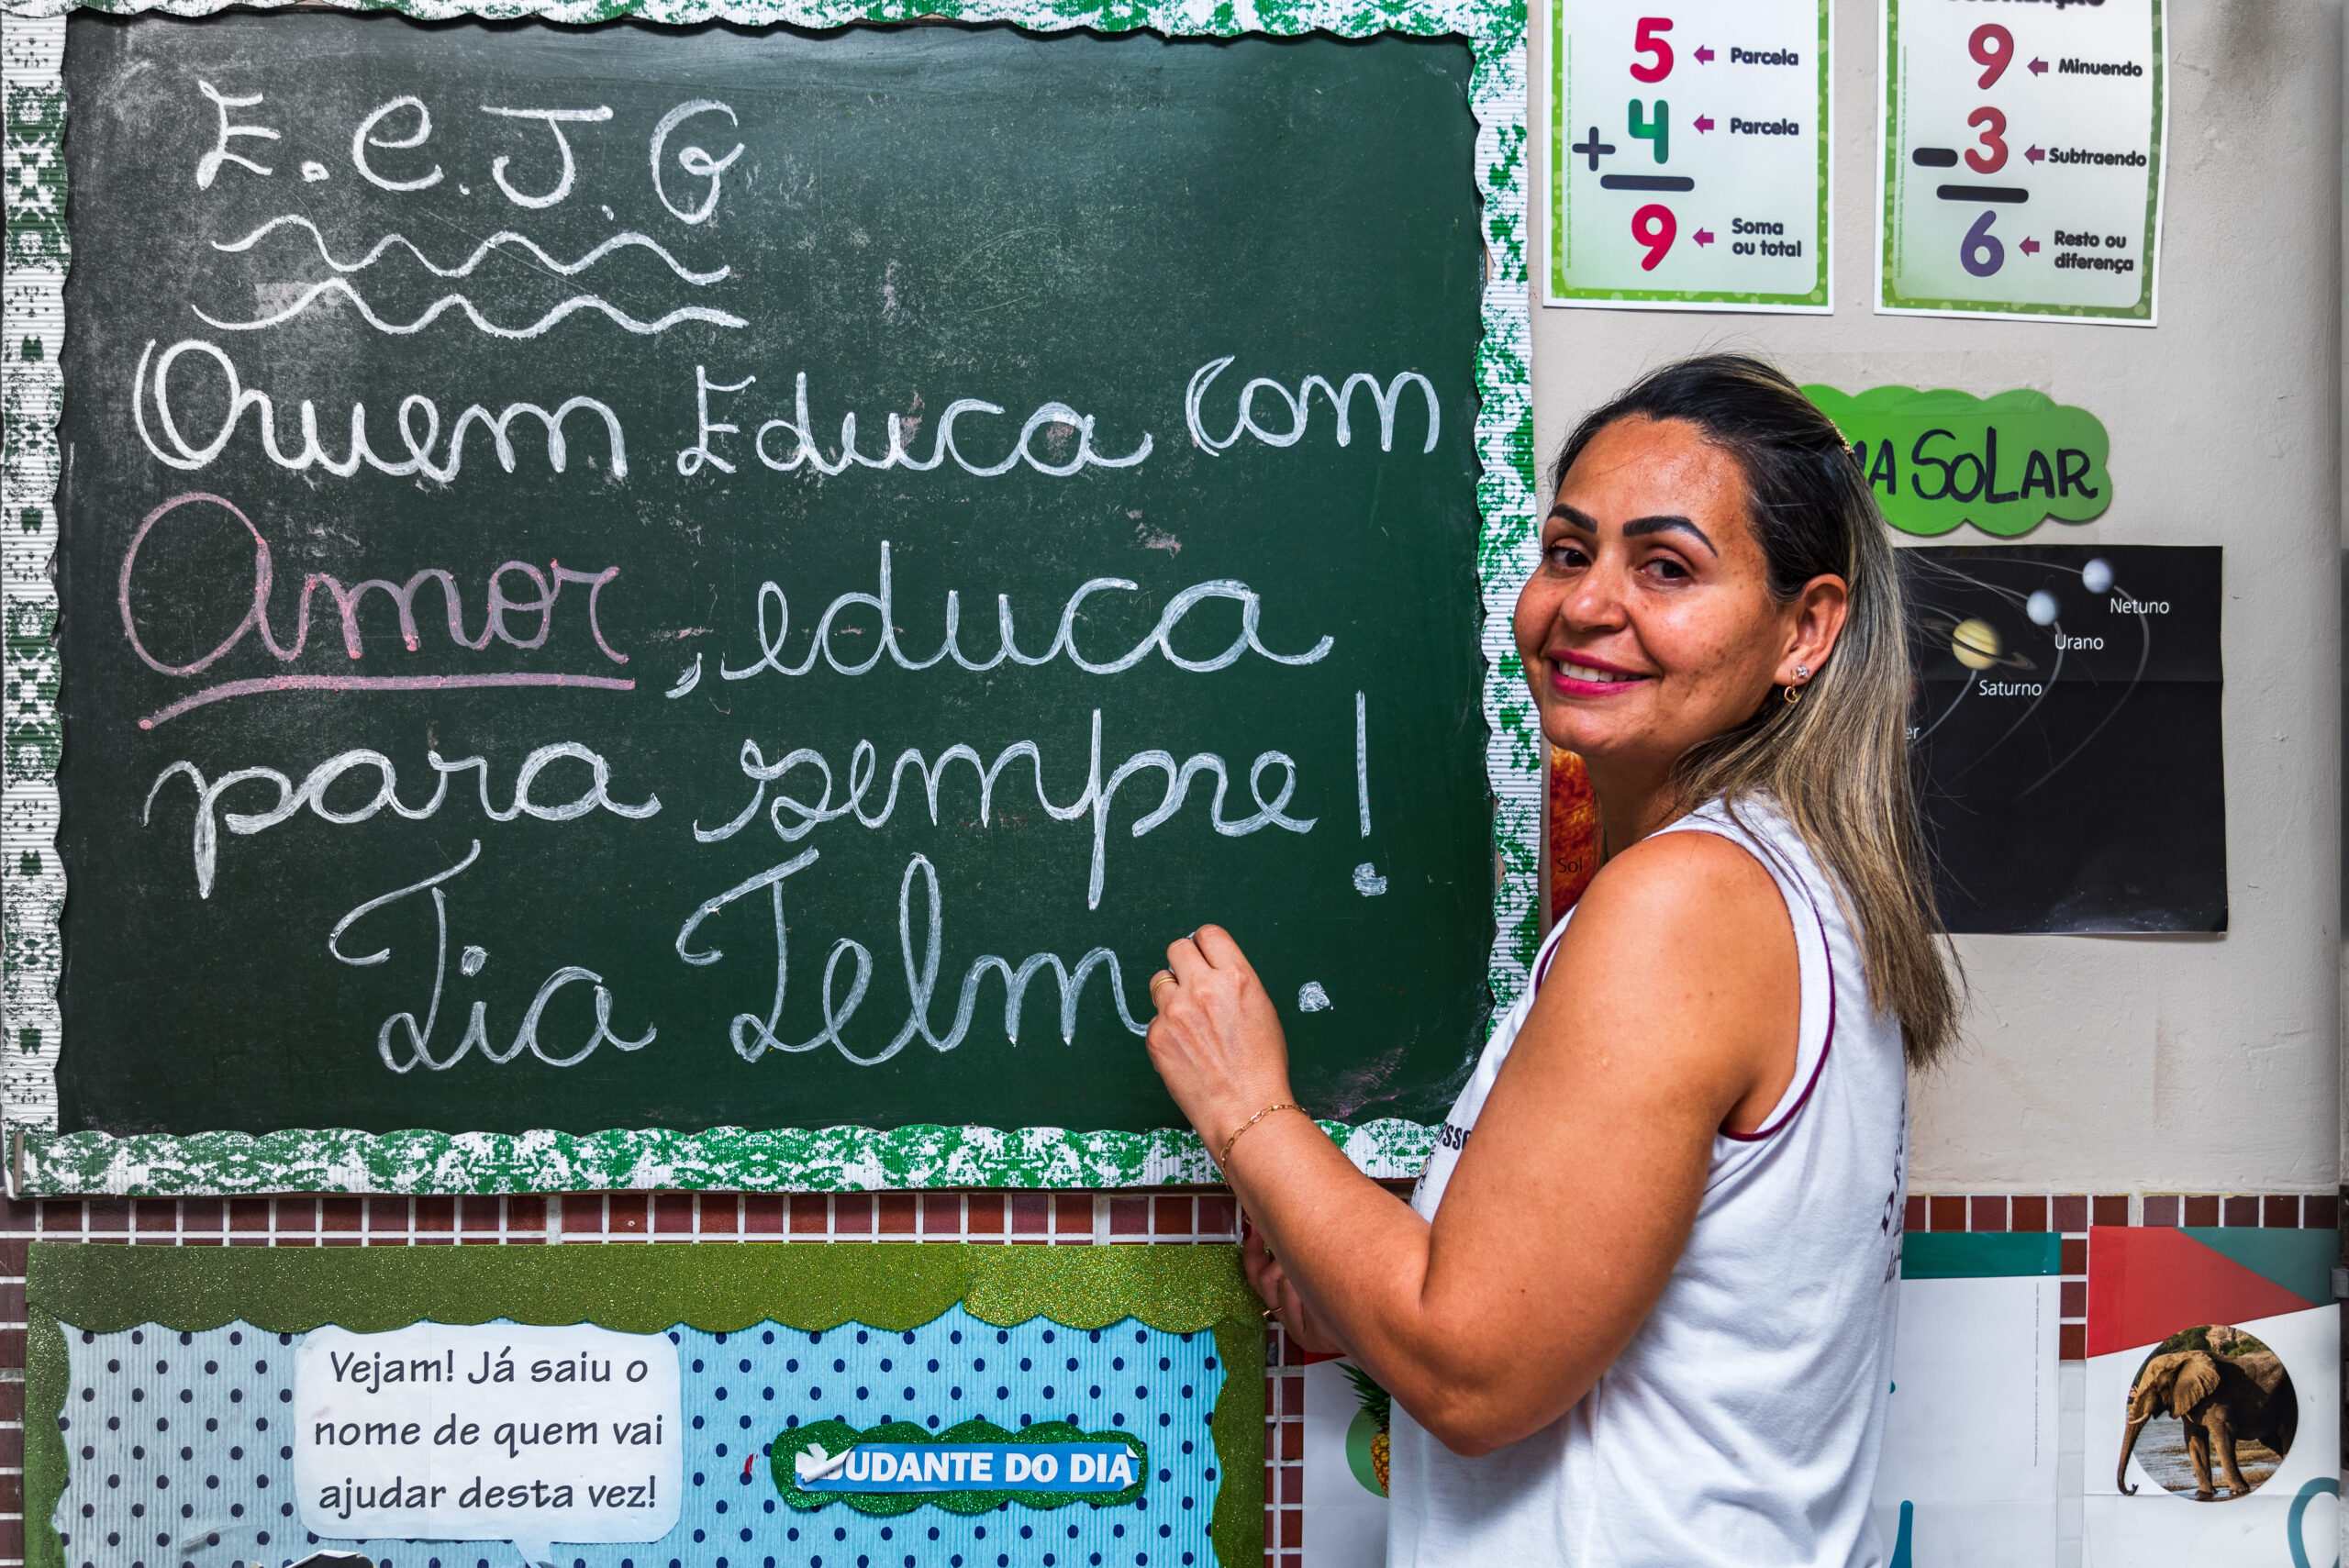 E.C.J.G
Quem Educa com
Amor, educa
para sempre!
Tia Telm
5 Parcela
+ 4 Parcela
9 Soma
ou total
9 Minuendo
- 3 Subtraendo
6 Resto ou
diferença
SOLAR
Netuno
Urano
Saturno
Sol
Vejam! Já saiu o
nome de quem vai
ajudar desta vez!
UDANTE DO DIA